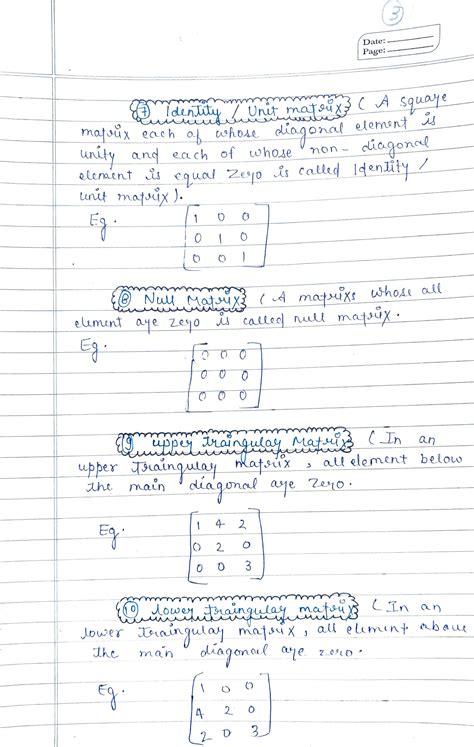 3
Date:
Page:
7 Identity, Unit matrix (A square
matrix each of whose diagonal element is
unity and each of whose non-diagonal
element is equal zero is called Identity /
unit matrix).
Eg.
1 0 0
0 1 0
0 0 1
8 Null Matrix (A matrixs whose all
element are zero is called null matrix.
Eg.
0 0 0
0 0 0
0 0 0
9 upper traingular Matrix (In an
upper traingular matrix, all element below
the main diagonal are zero.
Eg.
1 4 2
0 2 0
0 0 3
10 lower traingular matrix (In an
lower traingular matrix, all element above
the main diagonal are zero.
Eg.
1 0 0
4 2 0
2 0 3